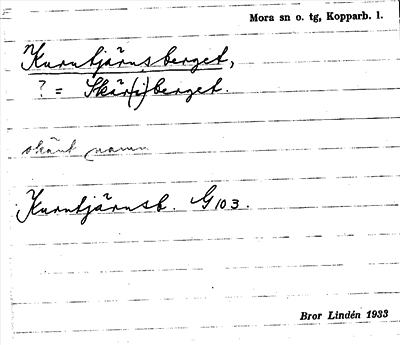 Mora sn o. tg, Kopparb. l.
Kurntjärnsberget,
? = Skär(i)berget.
okänt namn
Kurntjärnsb. G103.
Bror Lindén 1933